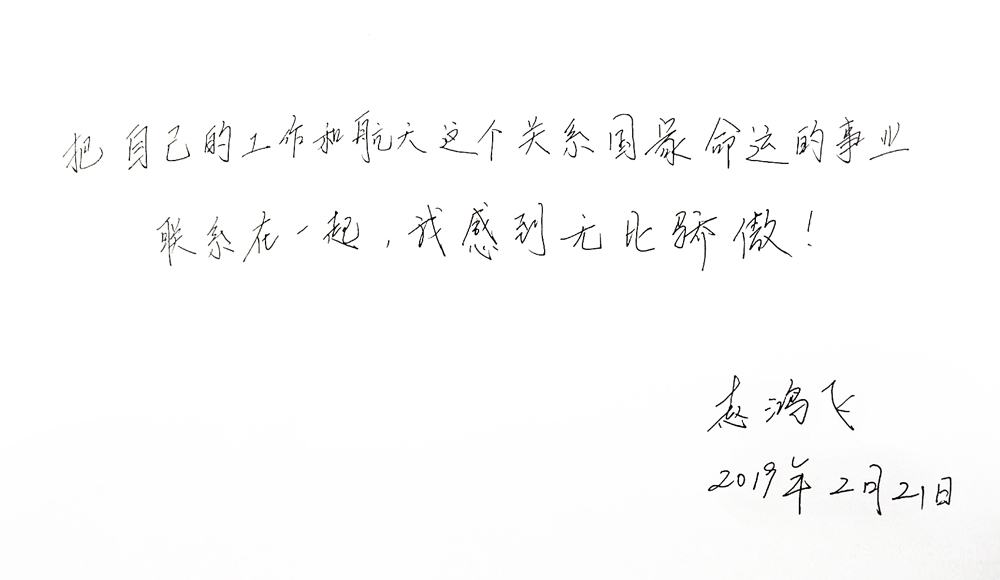 把自己的工作和航天这个关系国家命运的事业
联系在一起，我感到无比骄傲！
志鸿飞
2019年2月21日